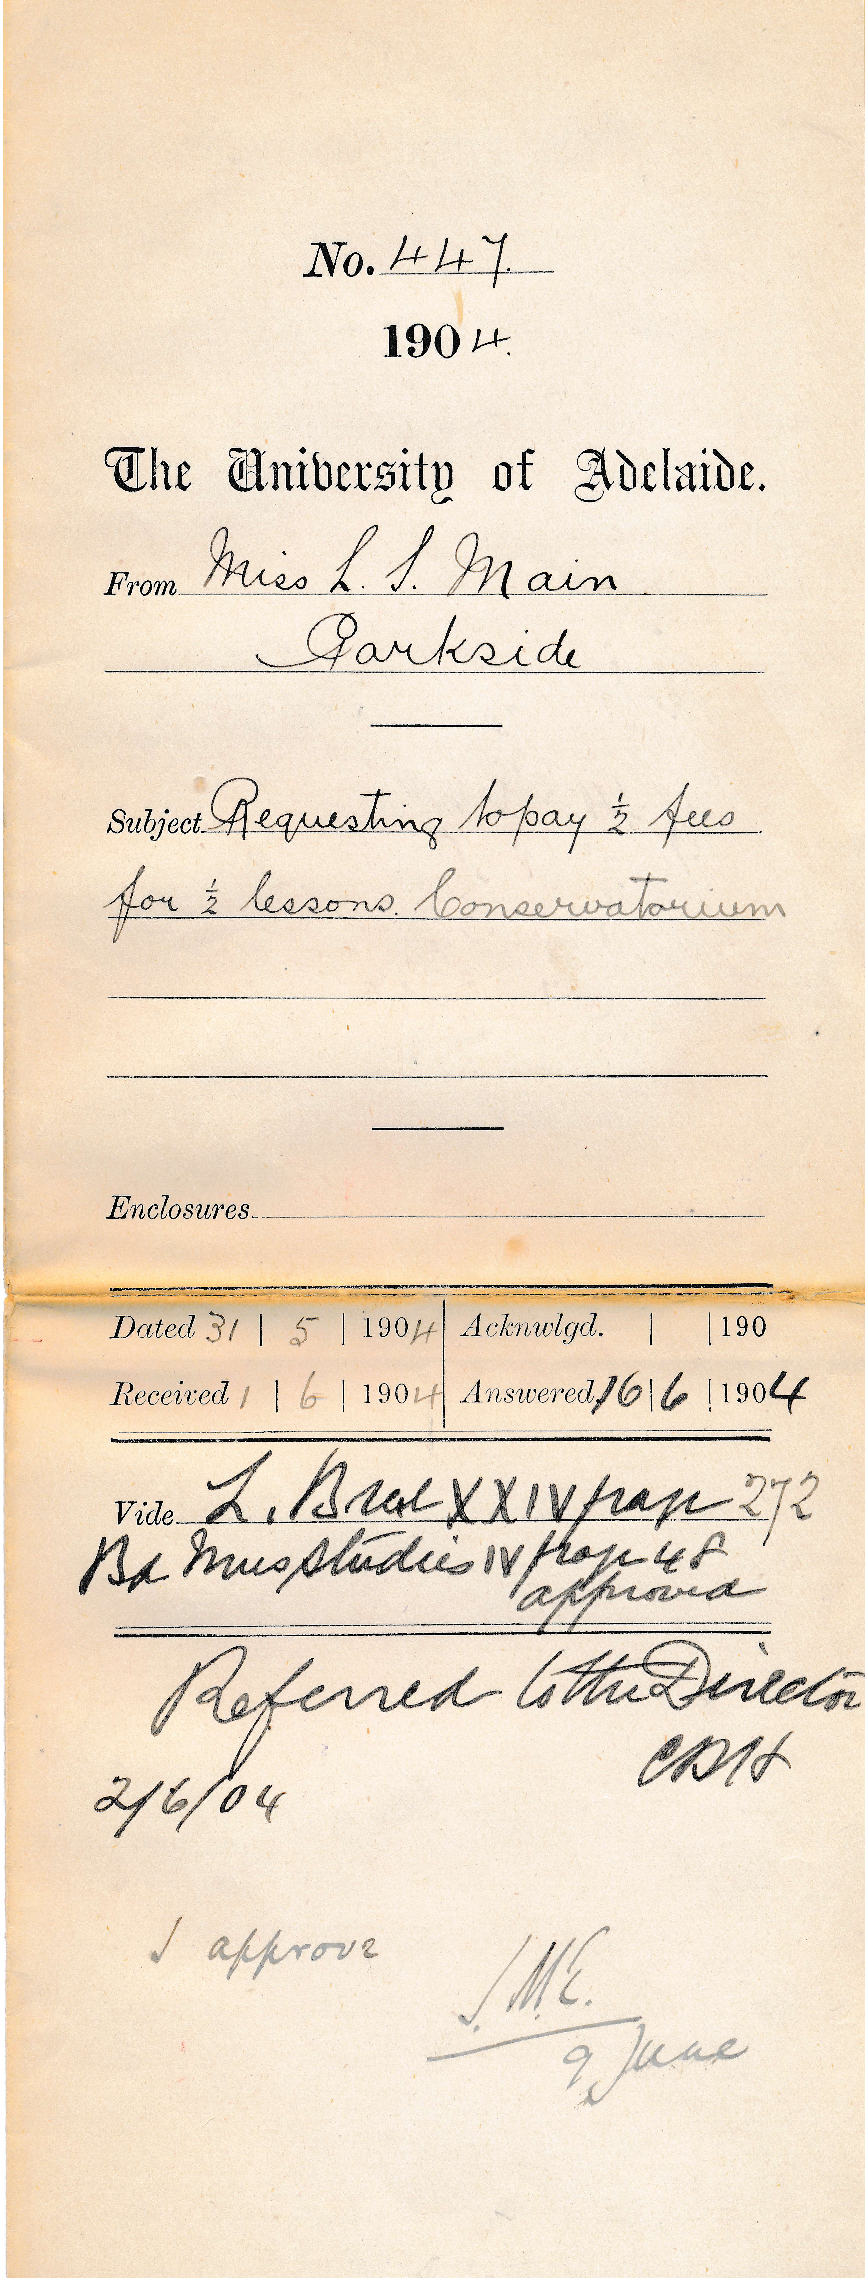 No. 447.
1904.
The University of Adelaide.
From Miss L. S. Main
Parkside
Subject Requesting to pay ½ fees
for ½ lessons. Conservatorium
Enclosures
Dated 31 | 5 | 1904 Acknwlgd. | | 190
Received 1 | 6 | 1904 Answered 16 | 6 | 1904
Vide L. XXIV page 272
Bd Mus Studies IV page 48
approved
Referred to the Director
CRH
2/6/04
I approve
J.M.E.
9 June